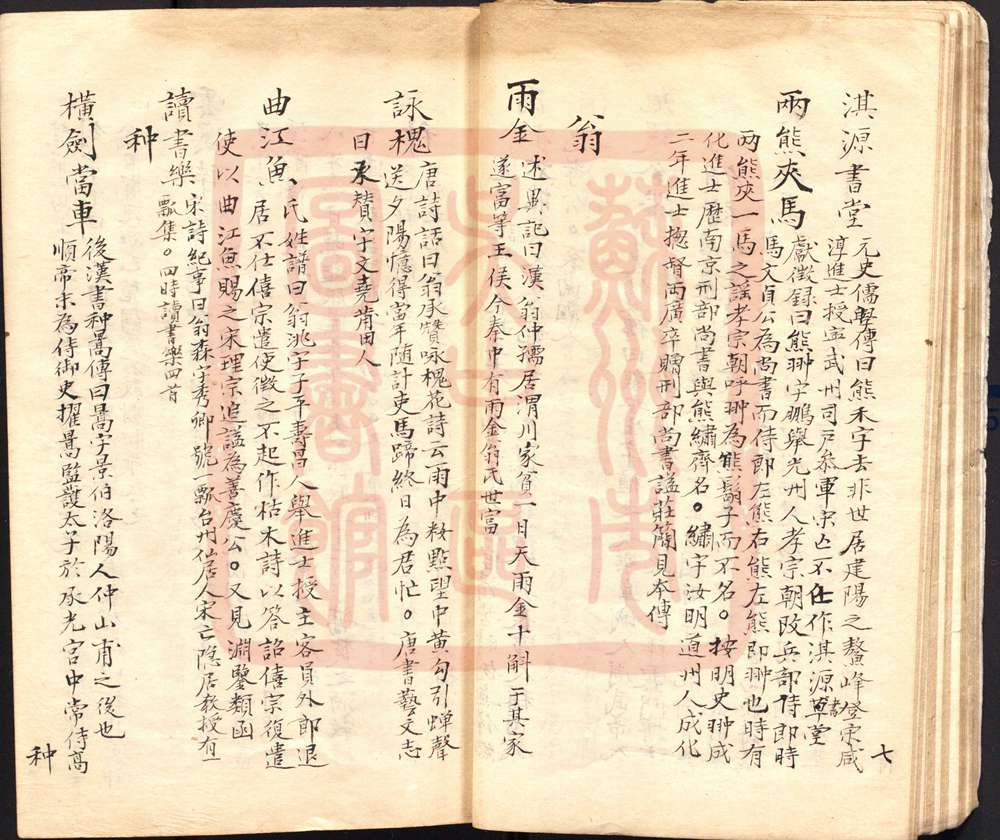 淇源書堂 元史儒學傳曰熊禾字去非世居建陽之鰲峰登宋咸
淳進士授寧武州司戶參軍宋亡不仕作淇源書堂
兩熊夾馬 獻徵錄曰熊翀字鵬舉光州人孝宗朝改兵部侍郎時
馬文貞公為尚書而侍郎左熊右熊左熊即翀也時有
兩熊夾一馬之謠孝宗朝呼翀為熊鬍子而不名。按明史翀成
化進士歷南京刑部尚書與熊繡齊名。繡字汝明道州人成化
二年進士揔督兩廣卒贈刑部尚書謚莊簡見本傳
翁
雨金 述異記曰漢翁仲孺居渭川家貧一日天雨金十斛于其家
遂富等王侯今秦中有雨金翁氏世富
詠槐 唐詩話曰翁承贊咏槐花詩云雨中粧點望中黃勾引蟬聲
送夕陽憶得當年隨計吏馬蹄終日為君忙。唐書藝文志
曰承贊字文堯莆田人
曲江魚 氏姓譜曰翁洮字子平壽昌人舉進士授主客員外郎退
居不仕僖宗遣使徵之不起作枯木詩以答詔僖宗復遣
使以曲江魚賜之宋理宗追謚為善慶公。又見淵鑒類函
讀書樂 宋詩紀事曰翁森字秀卿號一瓢台州仙居人宋亡隐居教授有一
瓢集。四時讀書樂四首
种
橫劍當車 後漢書种暠傳曰暠字景伯洛陽人仲山甫之後也
順帝末為侍御史擢暠監護太子於承光宮中常侍高
七
种
蘇州市
圖書館